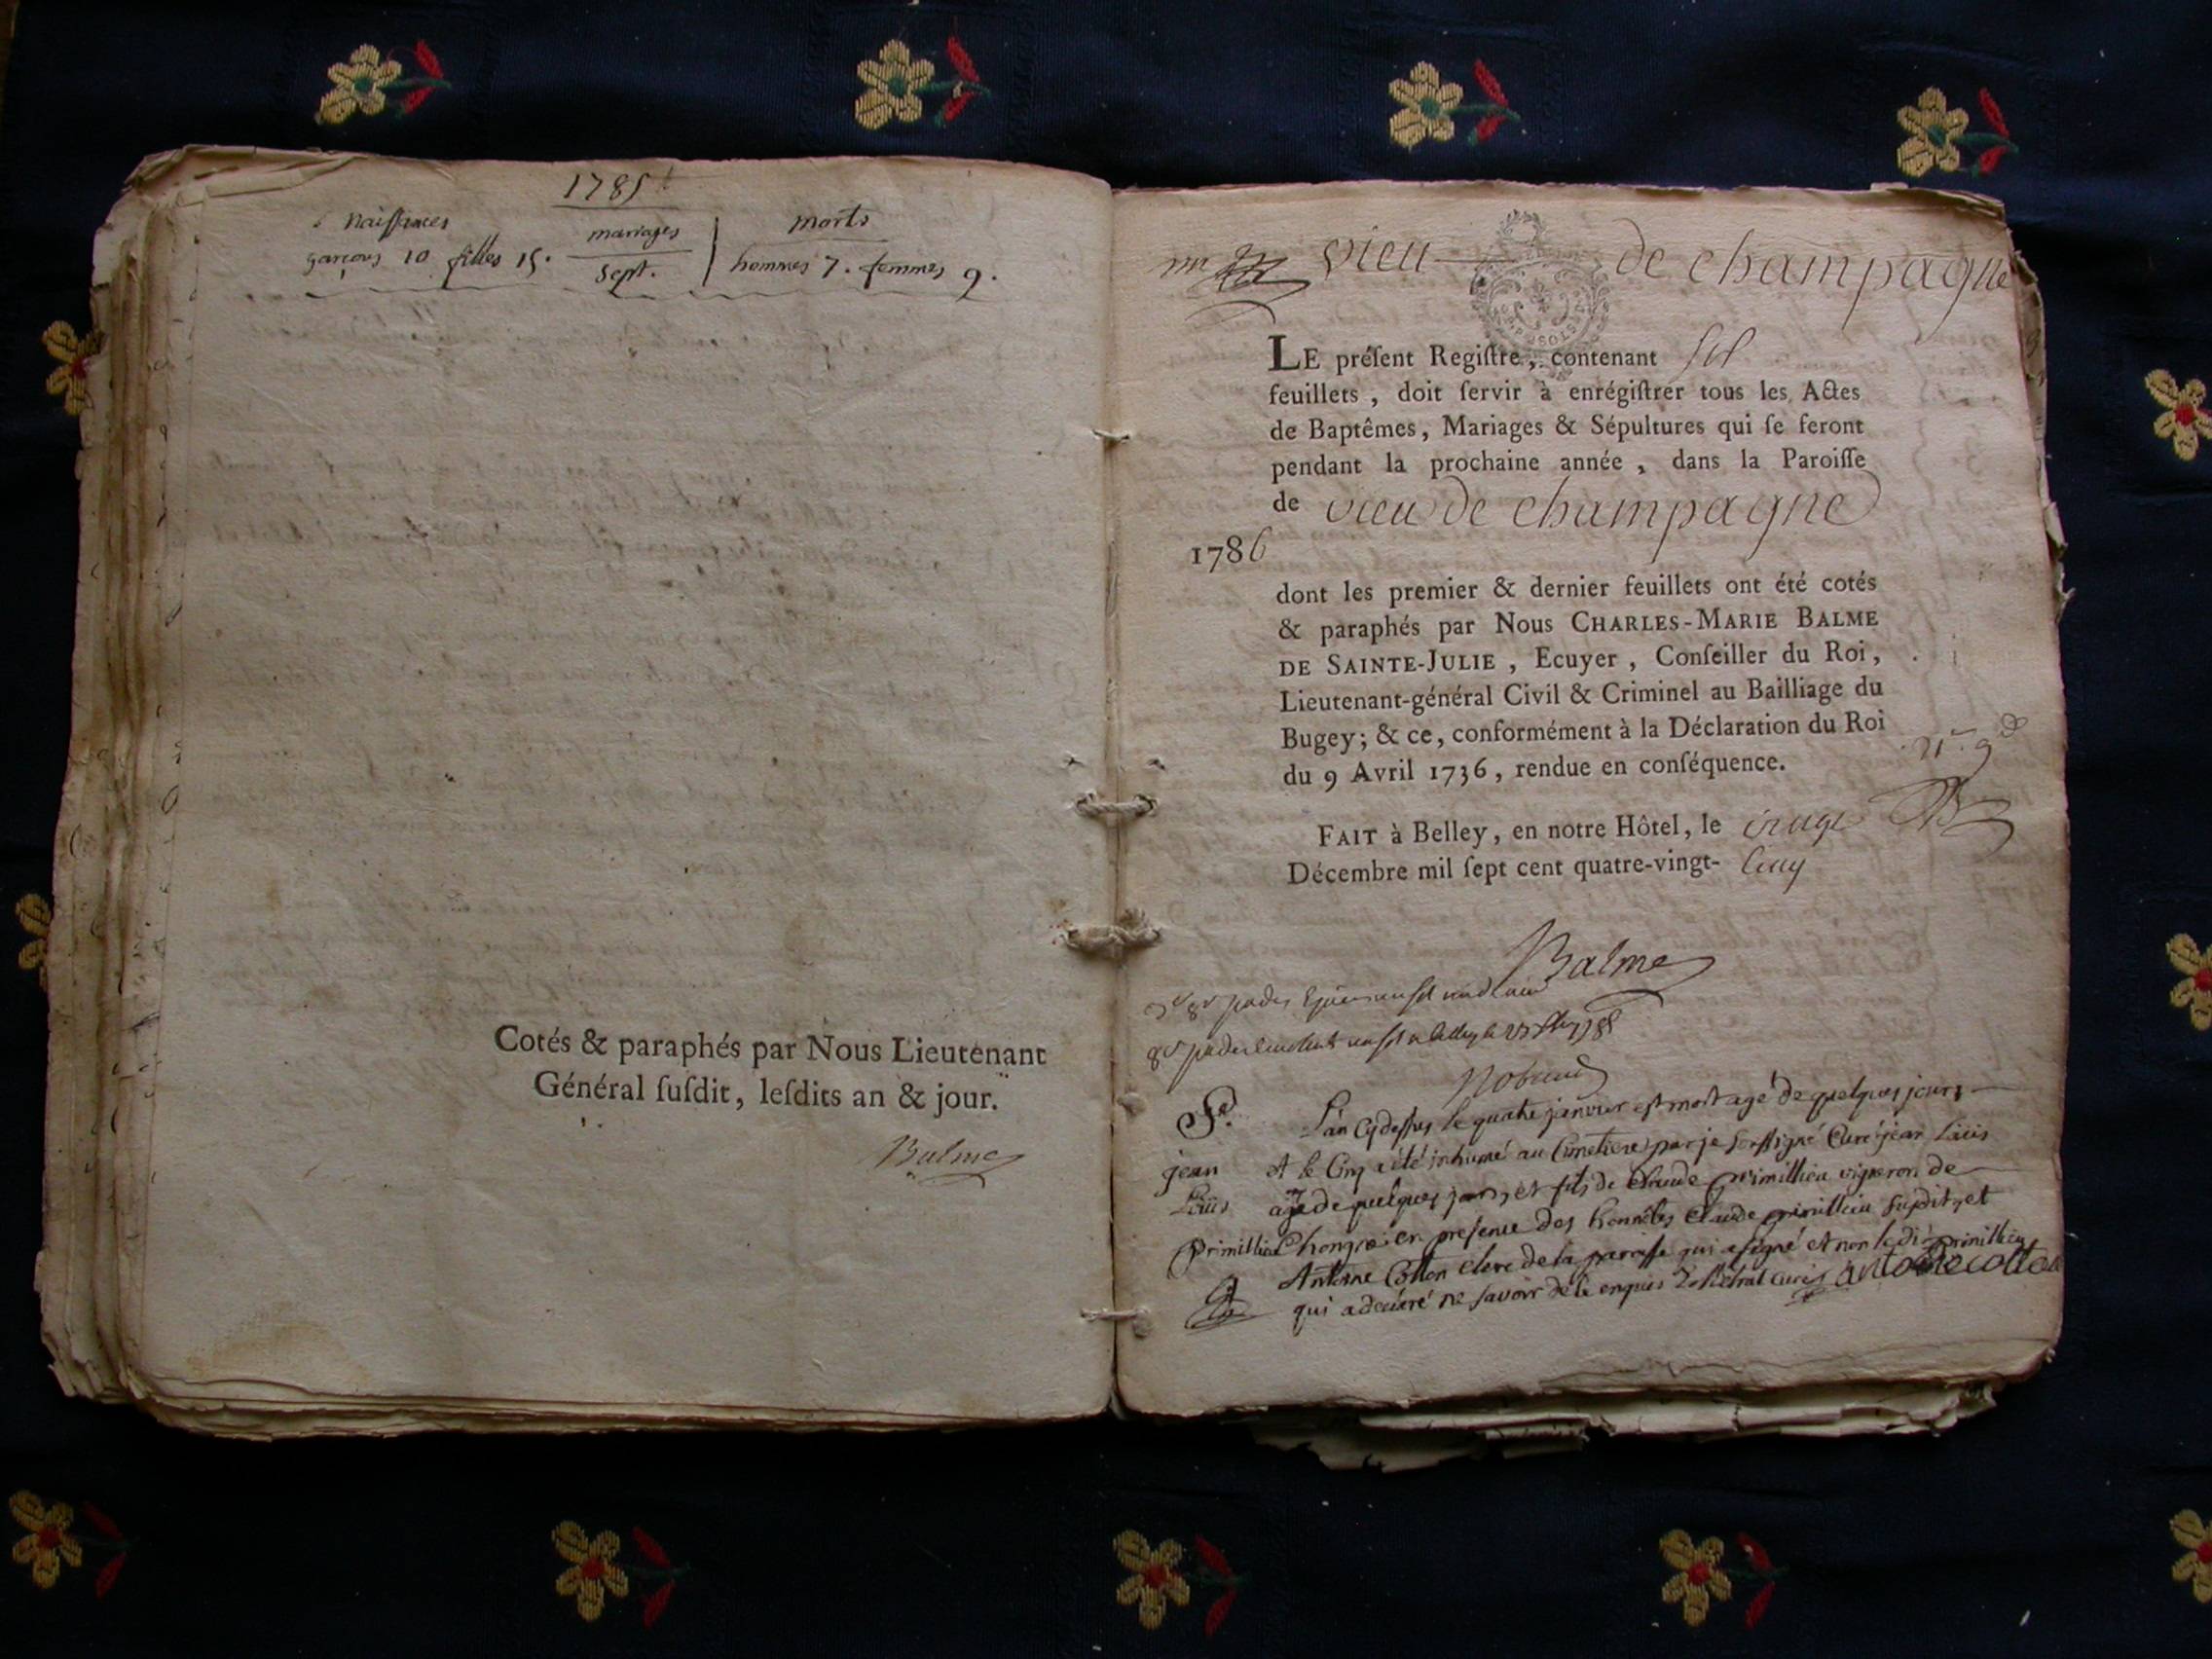 1785
naissances
garçons 10 filles 15.
mariages
sept.
morts
hommes 7. femmes 9.
Cotés & paraphés par Nous Lieutenant
Général ſuſdit, leſdits an & jour.
Balme
vieu de champagne
LE préſent Regiſtre, contenant
feuillets, doit ſervir à enrégiſtrer tous les Actes
de Baptêmes, Mariages & Sépultures qui ſe feront
pendant la prochaine année, dans la Paroiſſe
de vieu de champagne
1786
dont les premier & dernier feuillets ont été cotés
& paraphés par Nous CHARLES-MARIE BALME
DE SAINTE-JULIE, Ecuyer, Conſeiller du Roi,
Lieutenant-général Civil & Criminel au Bailliage du
Bugey; & ce, conformément à la Déclaration du Roi
du 9 Avril 1736, rendue en conſéquence.
FAIT à Belley, en notre Hôtel, le
Décembre mil ſept cent quatre-vingt- cinq
Balme
S.
jean
Loüis
primillieu
L'an cydessus le quatre janvier est mort agé de quelques jours
et le cinq a été inhumé au cimetiere par je soussigné curé jean Loüis
agé de quelques jours, et fils de claude primillieu vigneron de
hongrie: en presence des honnêtes claude primillieu susdit, et
Antoine Cotton clerc de la paroisse qui a signé et non ledi primillieu
qui a declaré ne savoir de ce enquis curé antoine cotton